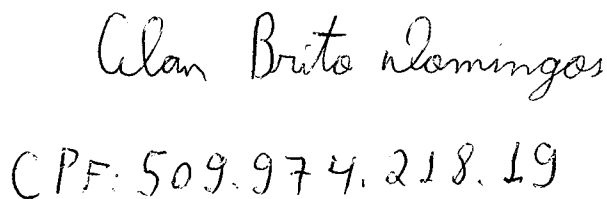 Alan Brito Domingos
CPF: 509.974.218.19